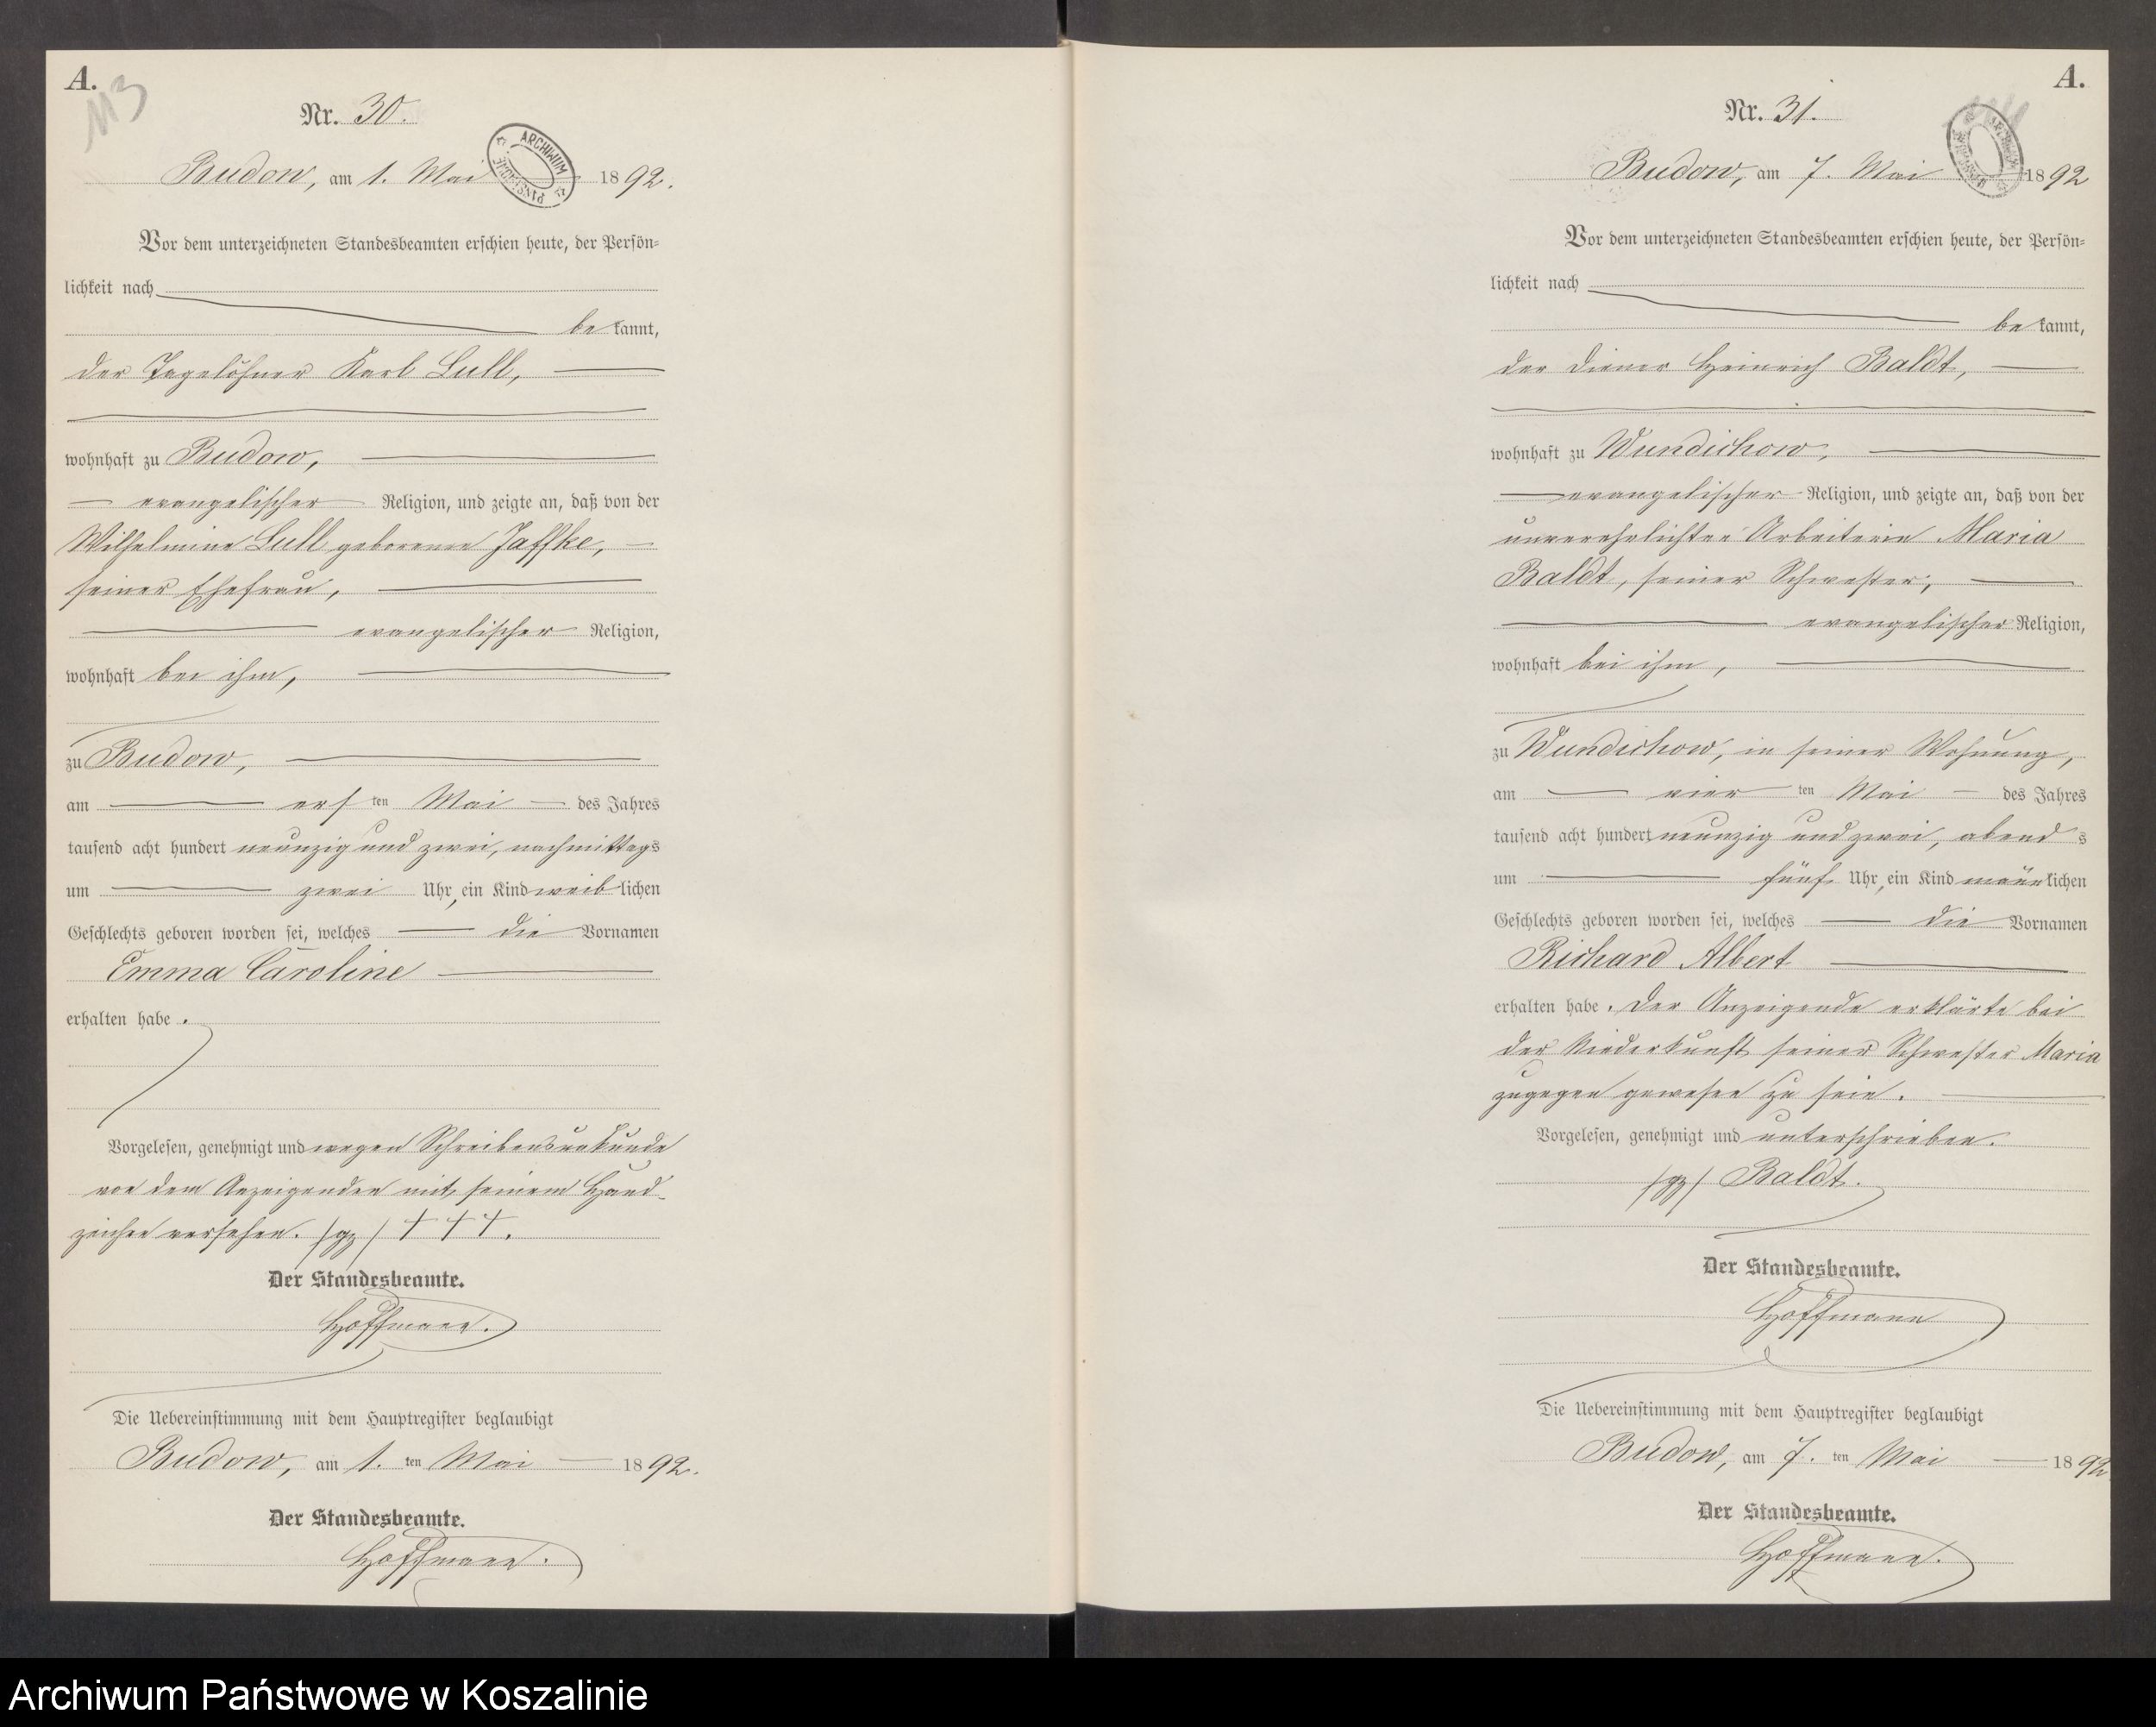 A.
113
Nr. 30.
ARCHIWUM PAŃSTWOWE
Budow, am 1. Mai 1892.
Vor dem unterzeichneten Standesbeamten erschien heute, der Persön-
lichkeit nach
be kannt,
der Tagelöhner Karl Lull,
wohnhaft zu Budow,
evangelischer Religion, und zeigte an, daß von der
Wilhelmine Lull geborenen Jaffke,
seiner Ehefrau,
evangelischer Religion,
wohnhaft bei ihm,
zu Budow,
am ersten Mai des Jahres
tausend acht hundert neunzig und zwei, nachmittags
um zwei Uhr, ein Kind weiblichen
Geschlechts geboren worden sei, welches die Vornamen
Emma Caroline
erhalten habe.
Vorgelesen, genehmigt und wegen Schreibensunkunde
von dem Anzeigenden mit seinem Hand-
zeichen versehen. /gz/ + + +.
Der Standesbeamte.
Hoffmann.
Die Uebereinstimmung mit dem Hauptregister beglaubigt
Budow, am 1. ten Mai 1892.
Der Standesbeamte.
Hoffmann.
A.
Nr. 31.
Budow, am 7. Mai 1892
Vor dem unterzeichneten Standesbeamten erschien heute, der Persön-
lichkeit nach
be kannt,
der Diener Heinrich Baldt,
wohnhaft zu Wundichow,
evangelischer Religion, und zeigte an, daß von der
unverehelichten Arbeiterin Maria
Baldt, seiner Schwester,
evangelischer Religion,
wohnhaft bei ihm,
zu Wundichow, in seiner Wohnung,
am vier ten Mai des Jahres
tausend acht hundert neunzig und zwei, abends
um fünf Uhr, ein Kind männlichen
Geschlechts geboren worden sei, welches die Vornamen
Richard Albert
erhalten habe. Der Anzeigende erklärte bei
der Niederkunft seiner Schwester Maria
zugegen gewesen zu sein.
Vorgelesen, genehmigt und unterschrieben.
/gz/ Baldt.
Der Standesbeamte.
Hoffmann
Die Uebereinstimmung mit dem Hauptregister beglaubigt
Budow, am 7. ten Mai 1892
Der Standesbeamte.
Hoffmann.
Archiwum Państwowe w Koszalinie